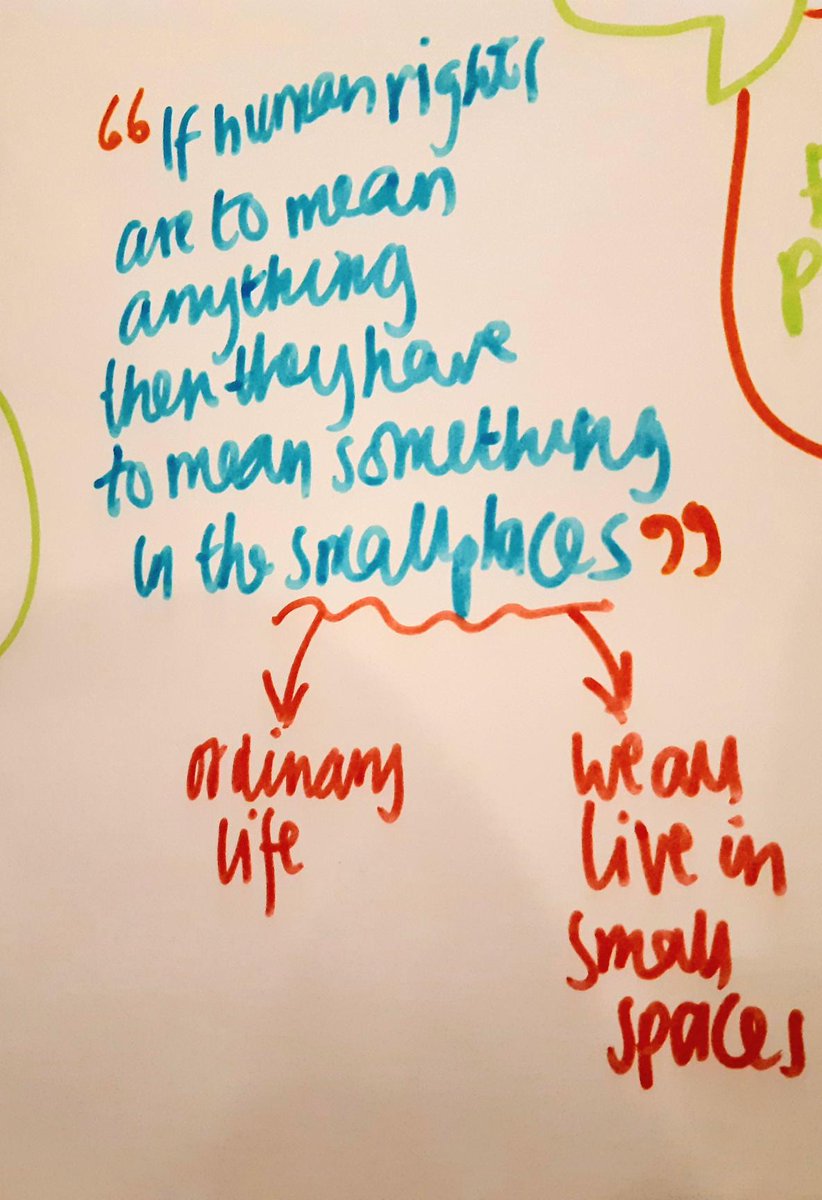 “If human rights
are to mean
anything
then they have
to mean something
in the small places”
ordinary
life
we all
live in
small
spaces